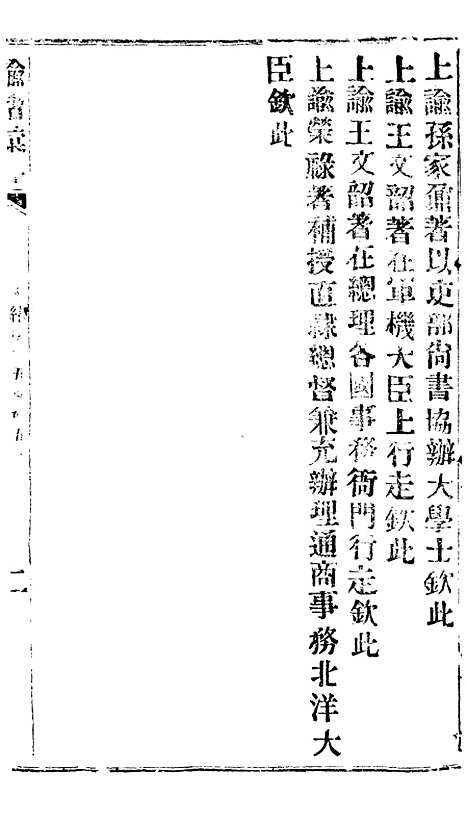 上諭孫家鼐著以吏部尙書協辦大學士欽此
上諭王文韶著在軍機大臣上行走欽此
上諭王文韶著在總理各國事務衙門行走欽此
上諭榮祿著補授直隸總督兼充辦理通商事務北洋大
臣欽此
諭書
二